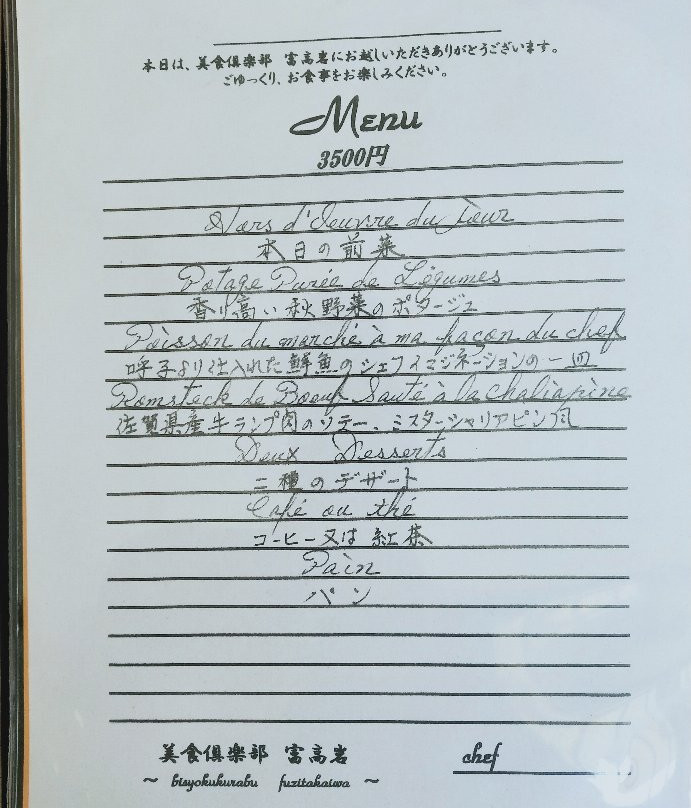 本日は、美食倶楽部 富高岩にお越しいただきありがとうございます。
ごゆっくり、お食事をお楽しみください。
Menu
3500円
Hors d'Oeuvre du jour
本日の前菜
Potage Purée de Légumes
香り高い秋野菜のポタージュ
Poisson du marché à ma façon du chef
呼子より仕入れた鮮魚のシェフイマジネーションの一皿
Romsteck de Boeuf Sauté à la chaliapine
佐賀県産牛ランプ肉のソテー、ミスターシャリアピン風
Deux Desserts
二種のデザート
Café ou thé
コーヒー又は 紅茶
Pain
パン
美食倶楽部 富高岩
chef
～ bisyokukurabu fuzitakaiwa ～